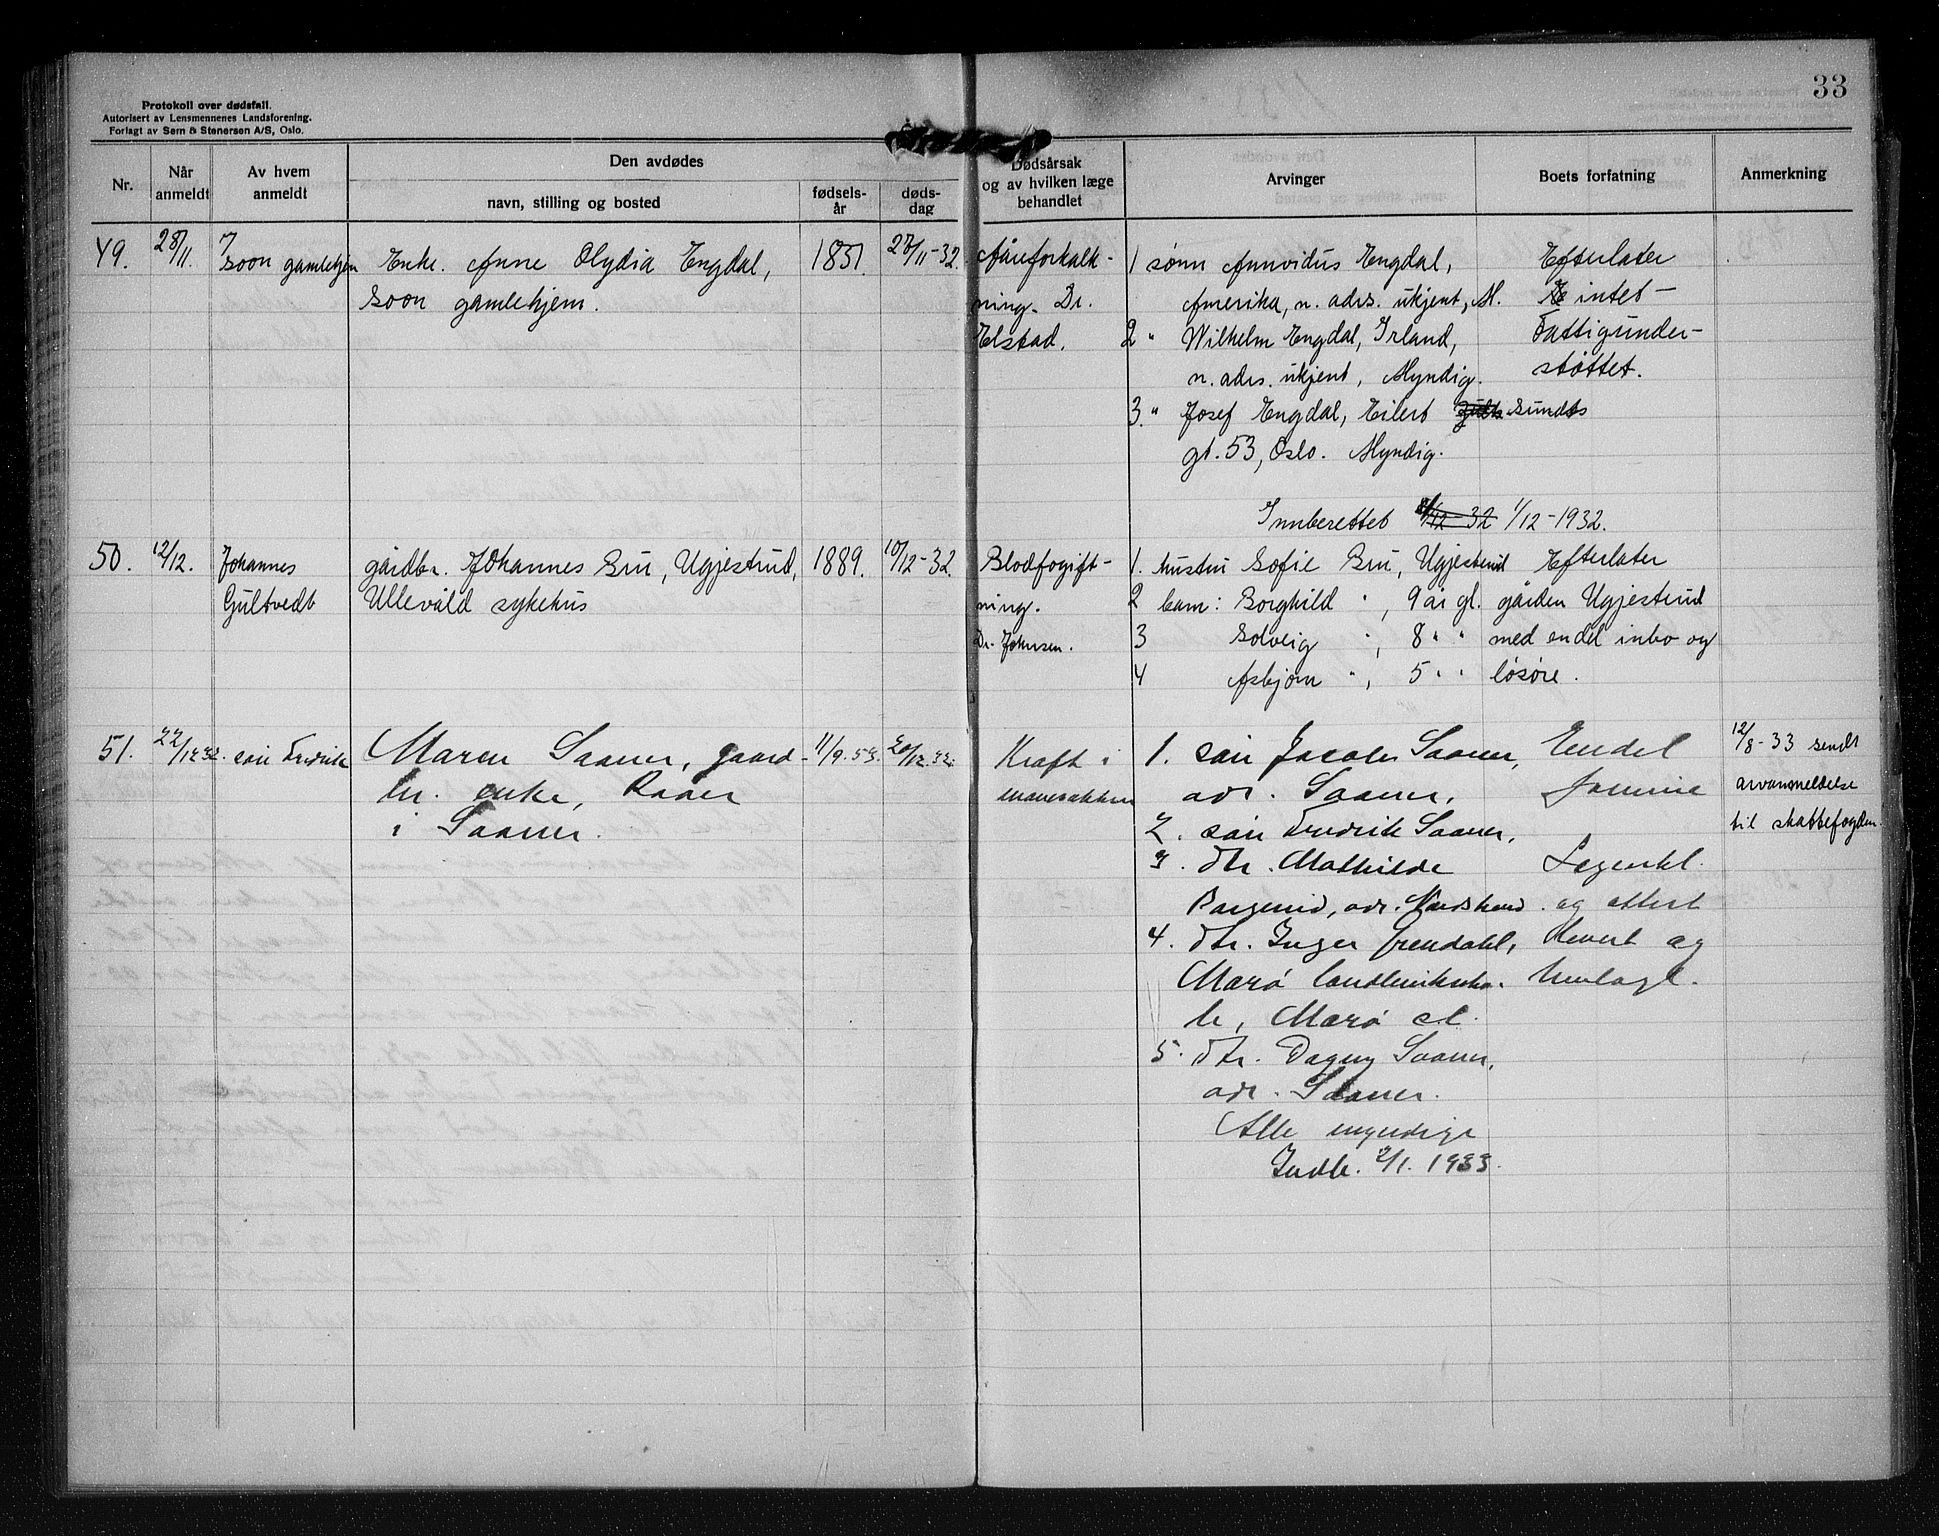 33
Protokoll over dødsfall.
Autorisert av Lensmennenes Landsforening.
Forlagt av Sem & Stenersen A/S, Oslo.
Nr.
Når anmeldt
Av hvem anmeldt
Den avdødes
navn, stilling og bosted
fødselsår
dødsdag
Dødsårsak
og av hvilken læge
behandlet
Arvinger
Boets forfatning
Anmerkning
49. 28/11. Soon gamlehjem Enke. Anne Olydia Engdal, 1851. 27/11-32.
Soon gamlehjem.
Åreforkalk-
ning. Dr.
Elstad.
1 sønn Annvidus Engdal,
Amerika, n. adrs. ukjent, M.
2 " Wilhelm Engdal, Irland,
n. adrs. ukjent, Myndig.
3. " Josef Engdal, Eilert Sundts
gt. 53, Oslo. Myndig.
Efterlater
intet -
Fattigunder-
støttet.
Innberettet 1/12-32 1/12-1932.
50. 12/12. Johannes
Gultvedt
gårdbr. Johannes Bru, Ugjestrud, 1889. 10/12-32.
Ullevåld sykehus
Blodfogift-
ning.
Dr. Johnsen.
1. hustru Sofie Bru, Ugjestrud
2 barn: Borghild ", 9 år gl.
3 Solveig ", 8 " "
4 Asbjørn ", 5 " "
Efterlater
gården Ugjestrud
med endel inbo og
løsøre.
51. 22/12 32. søn Fredrik Maren Saaner, gaard- 11/9.53. 20/12.32.
br. enke,
i Saaner.
Kraft i
mavesækken
1. søn Jacob Saaner,
adr. Saaner.
2. søn Fredrik Saaner,
3. dtr. Mathilde
adr.
4. dtr. Inger Grendahl,
Marø
br, Marø st.
5. dtr. Dagny Saaner,
adr. Saaner.
Alle myndige
Indb. 2/1. 1933.
Endel
og attest
og
12/8-33 sendt
arvanmeldelse
til skattefogden.